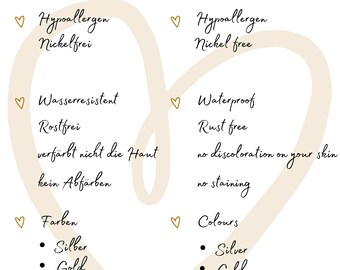 Hypoallergen
Nickelfrei
Wasserresistent
Rostfrei
verfärbt nicht die Haut
kein Abfärben
Farben
• Silber
• Gold
Hypoallergen
Nickel free
Waterproof
Rust free
no discoloration on your skin
no staining
Colours
• Silver
• Gold